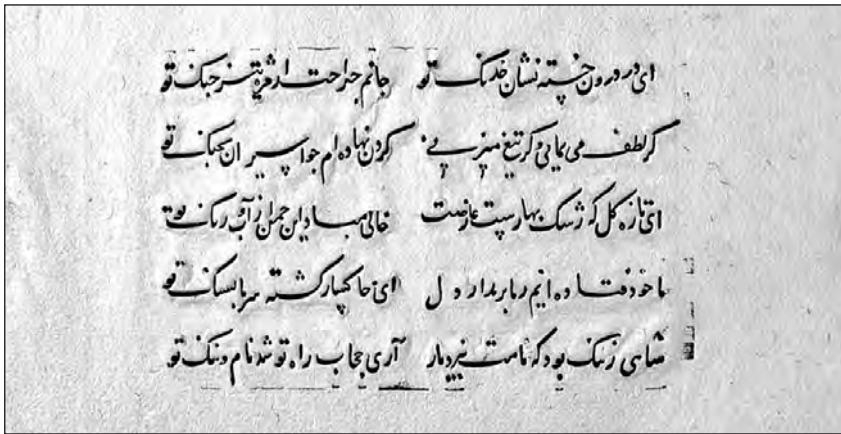 ای در درون خسته نشان خدنگ تو جانم جراحت از مژه تیز جنگ تو
گر لطف می نمائی و گر تیغ میزنی گردن نهاده ام چو اسیران بچنگ تو
ای تازه گل که رشک بهارست عارضت خالی مباد این چمن از آب و رنگ تو
ما خود فتاده ایم ز ما بر مدار دل ای خاکسار گشته سرما بسنگ تو
شاهی ز ننگ بود که نامت نبرد یار آری حجاب راه تو شد نام و ننگ تو